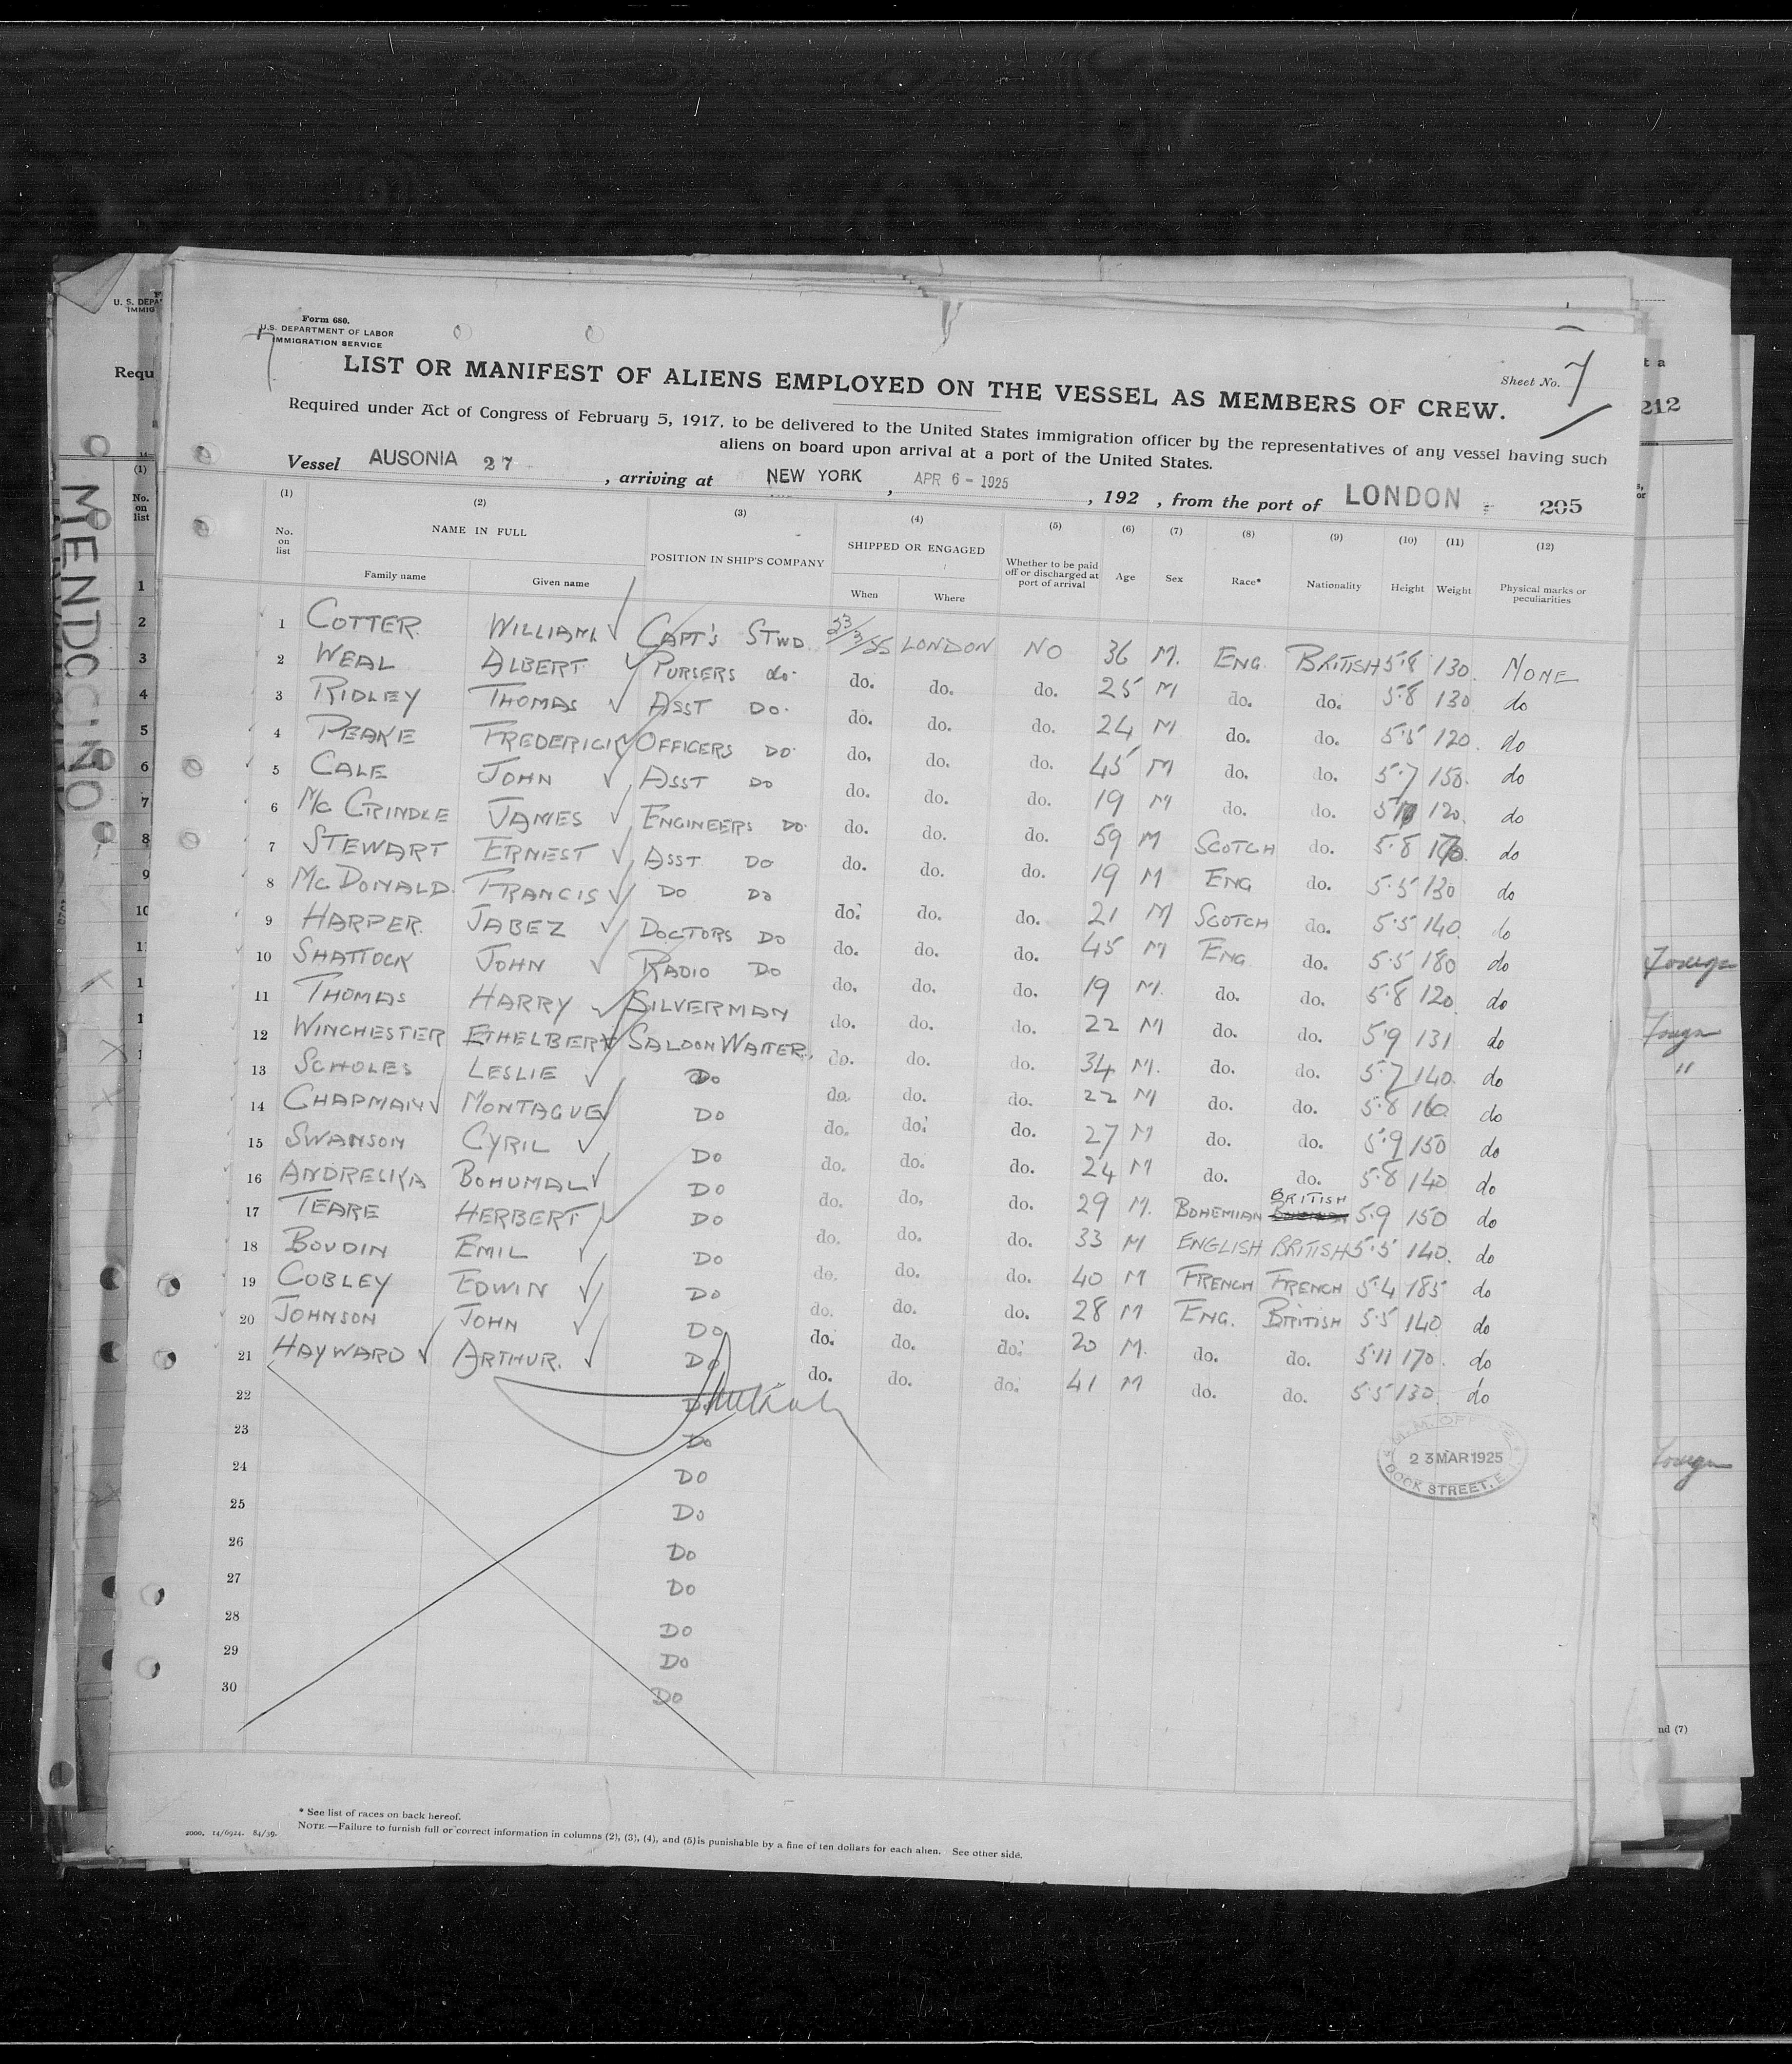 Form 680.
U.S. DEPARTMENT OF LABOR
IMMIGRATION SERVICE
Sheet No. 7
LIST OR MANIFEST OF ALIENS EMPLOYED ON THE VESSEL AS MEMBERS OF CREW.
Required under Act of Congress of February 5, 1917, to be delivered to the United States immigration officer by the representatives of any vessel having such
aliens on board upon arrival at a port of the United States.
Vessel AUSONIA 27, arriving at NEW YORK, APR 6 - 1925, 192 , from the port of LONDON 205
(1) (2) (3) (4) (5) (6) (7) (8) (9) (10) (11) (12)
No. on list NAME IN FULL POSITION IN SHIP'S COMPANY SHIPPED OR ENGAGED Whether to be paid off or discharged at port of arrival Age Sex Race* Nationality Height Weight Physical marks or peculiarities
Family name Given name When Where
1 COTTER WILLIAM CAPT'S STWD 23/3/25 LONDON NO 36 M. ENG. BRITISH 5.8 130 NONE
2 WEAL ALBERT PURSERS do. do. do. do. 25 M do. do. 5.8 130 do
3 RIDLEY THOMAS ASST DO. do. do. do. 24 M do. do. 5.5 120 do
4 PEAKE FREDERICK OFFICERS DO. do. do. do. 45 M do. do. 5.7 158. do
5 CALE JOHN ASST DO do. do. do. 19 M do. do. 120. do
6 McCRINDLE JAMES ENGINEERS DO. do. do. do. 59 M SCOTCH do. 5.8 do
7 STEWART ERNEST ASST DO do. do. do. 19 M ENG do. 5.5 130 do
8 McDONALD. FRANCIS DO DO do. do. do. 21 M SCOTCH do. 5.5 140. do
9 HARPER. JABEZ DOCTORS DO do. do. do. 45 M ENG do. 5.5 180 do
10 SHATTOCK JOHN RADIO DO do. do. do. 19 M. do. do. 5.8 120 do
11 THOMAS HARRY SILVERMAN do. do. do. 22 M do. do. 5.9 131 do
12 WINCHESTER ETHELBERT SALOON WAITER. do. do. do. 34 M. do. do. 5.7 140. do
13 SCHOLES LESLIE DO do. do. do. 22 M do. do. 5.8 160 do
14 CHAPMAN MONTAGUE DO do. do. do. 27 M do. do. 5.9 150 do
15 SWANSON CYRIL DO do. do. do. 24 M do. do. 5.8 140 do
16 ANDRELIKA BOHUMAL DO do. do. do. 29 M. BOHEMIAN BRITISH 5.9 150 do
17 TEARE HERBERT DO do. do. do. 33 M ENGLISH BRITISH 5.5 140. do
18 BOUDIN EMIL DO do. do. do. 40 M FRENCH FRENCH 5.4 185 do
19 COBLEY EDWIN DO do. do. do. 28 M ENG. BRITISH 5.5 140 do
20 JOHNSON JOHN DO do. do. do. 20 M. do. do. 5.11 170. do
21 HAYWARD ARTHUR. DO do. do. do. 41 M do. do. 5.5 130. do
22 DO
23 DO
24 DO
25 DO
26 DO
27 DO
28 DO
29 DO
30 DO
23 MAR 1925
DOCK STREET, E.
* See list of races on back hereof.
2000. 14/6924. 84/39.
NOTE.—Failure to furnish full or correct information in columns (2), (3), (4), and (5) is punishable by a fine of ten dollars for each alien. See other side.
MENDOCINO
U. S. DEPA
IMMIG
Requ
(1)
No. on list
1
2
3
4
5
6
7
8
9
10
t a
212
Foreign
Foreign
"
Foreign
nd (7)